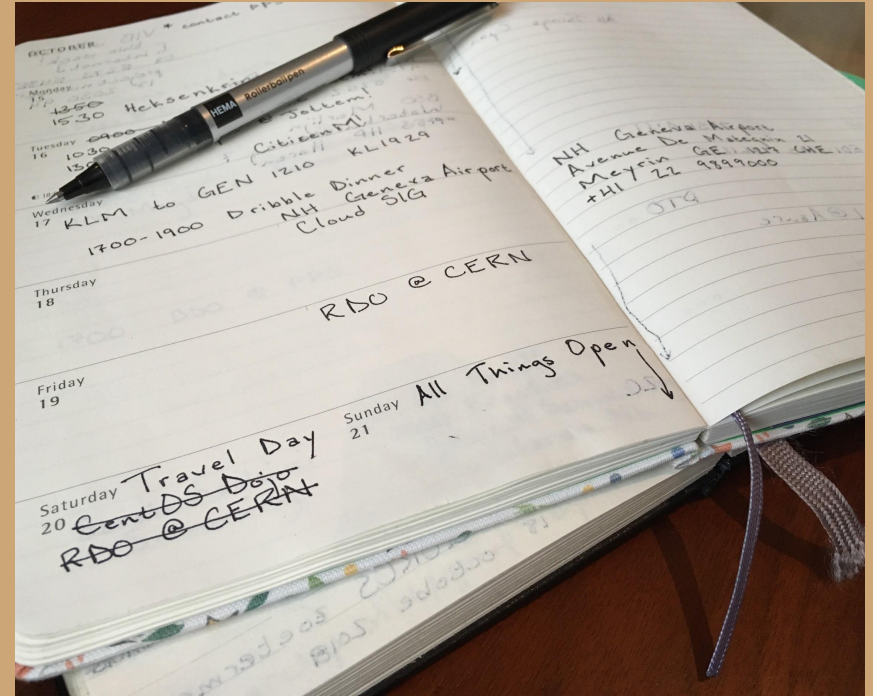 OCTOBER
* contact
Monday
15
1350
15.30 Heksenkring
HEMA Rollerballpen
Tuesday 0900
16 1030 @ Jottem!
CitizenM
Wednesday
17 KLM to GEN 1210 KL1929
1700-1900 Dribble Dinner
NH Geneva Airport
Cloud SIG
Thursday
18
RDO @ CERN
Friday
19
Saturday Travel Day
20 CentOS Dojo
RDO @ CERN
Sunday
21
All Things Open
NH Geneva Airport
Avenue De 21
Meyrin GE CHE
+41 22 9899000